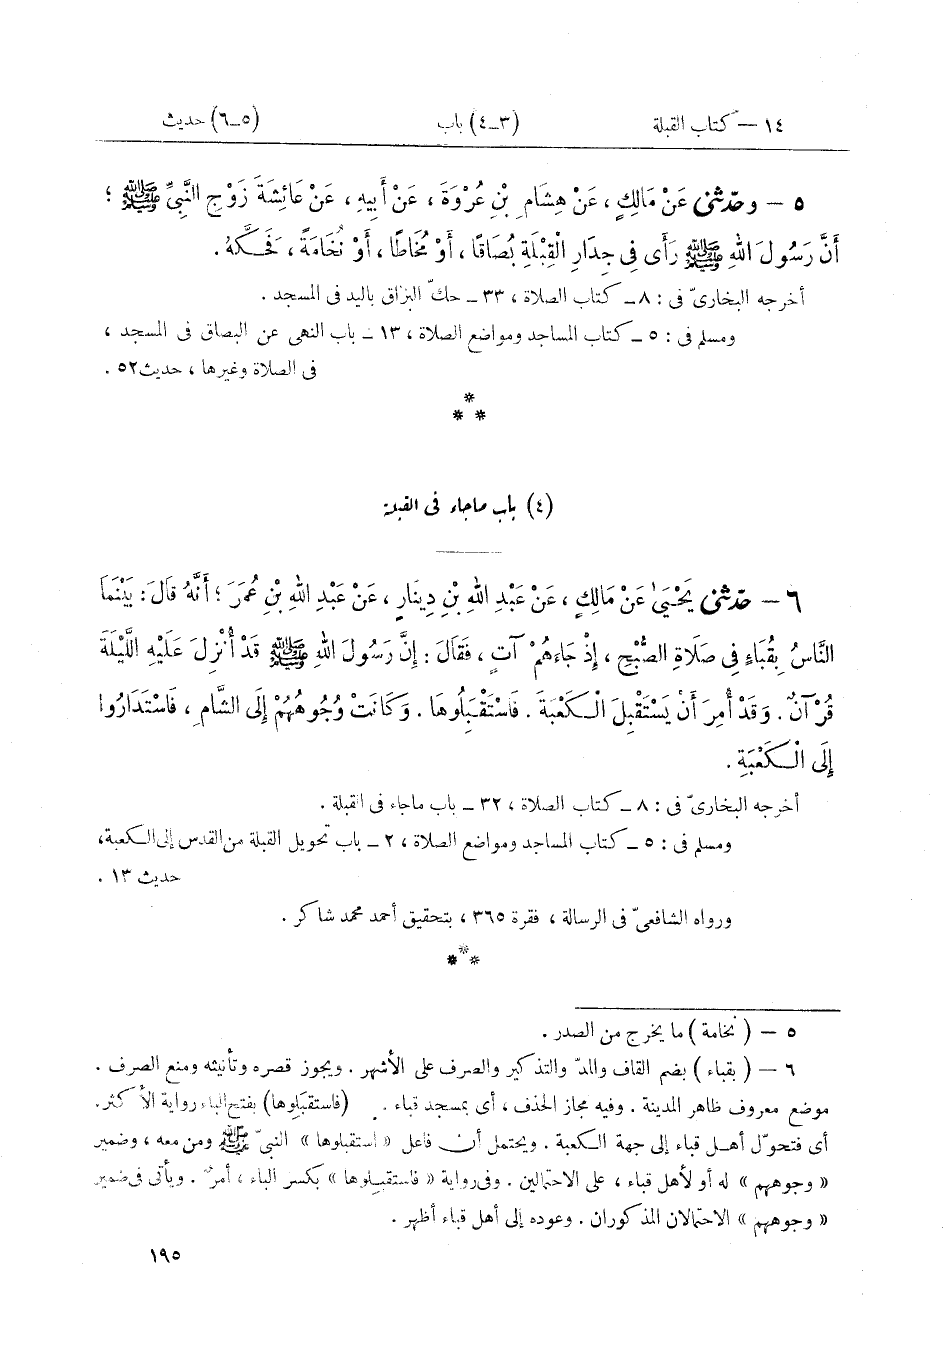 ١٤ — كتاب القبلة (٣ـ٤) باب (٥ـ٦) حديث
٥ — وحَدَّثَنِى عَنْ مَالِكٍ ، عَنْ هِشَامِ بْنِ عُرْوَةَ ، عَنْ أَبِيهِ ، عَنْ عَائِشَةَ زَوْجِ النَّبِيِّ ﷺ ؛
أَنَّ رَسُولَ اللهِ ﷺ رَأَى فِى جِدَارِ الْقِبْلَةِ بُصَاقًا ، أَوْ مُخَاطًا ، أَوْ نُخَامَةً ، فَحَكَّهُ .
أخرجه البخارىّ فى : ٨ ـ كتاب الصلاة ، ٣٣ ـ حكّ البزاق باليد فى المسجد .
ومسلم فى : ٥ ـ كتاب المساجد ومواضع الصلاة ، ١٣ ـ باب النهى عن البصاق فى المسجد ،
فى الصلاة وغيرها ، حديث ٥٢ .
*
* *
(٤) باب ماجاء فى القبلة
٦ — حَدَّثَنِى يَحْيَىٰ عَنْ مَالِكٍ ، عَنْ عَبْدِ اللهِ بْنِ دِينَارٍ ، عَنْ عَبْدِ اللهِ بْنِ عُمَرَ ؛ أَنَّهُ قَالَ : بَيْنَمَا
النَّاسُ بِقُبَاءٍ فِى صَلَاةِ الصُّبْحِ ، إِذْ جَاءَهُمْ آتٍ ، فَقَالَ : إِنَّ رَسُولَ اللهِ ﷺ قَدْ أُنْزِلَ عَلَيْهِ اللَّيْلَةَ
قُرْآنٌ . وَقَدْ أُمِرَ أَنْ يَسْتَقْبِلَ الْكَعْبَةَ . فَاسْتَقْبَلُوهَا . وَكَانَتْ وُجُوهُهُمْ إِلَى الشَّامِ ، فَاسْتَدَارُوا
إِلَى الْكَعْبَةِ .
أخرجه البخارىّ فى : ٨ ـ كتاب الصلاة ، ٣٢ ـ باب ماجاء فى القبلة .
ومسلم فى : ٥ ـ كتاب المساجد ومواضع الصلاة ، ٢ ـ باب تحويل القبلة من القدس إلى الكعبة،
حديث ١٣ .
ورواه الشافعىّ فى الرسالة ، فقرة ٣٦٥ ، بتحقيق أحمد محمد شاكر .
*
* *
٥ — (نخامة) ما يخرج من الصدر .
٦ — (بقباء) بضم القاف والمدّ والتذكير والصرف على الأشهر . ويجوز قصره وتأنيثه ومنع الصرف .
موضع معروف ظاهر المدينة . وفيه مجاز الحذف ، أى بمسجد قباء . (فاستقبَلوها) بفتح الباء رواية الأكثر.
أى فتحوّل أهل قباء إلى جهة الكعبة . ويحتمل أن فاعل « استقبلوها » النبىّ ﷺ ومن معه ، وضمير
« وجوههم » له أو لأهل قباء ، على الاحتمالين . وفى رواية « فاستقبِلوها » بكسر الباء ، أمرٌ . ويأتى فى ضمير
« وجوههم » الاحتمالان المذكوران . وعوده إلى أهل قباء أظهر .
١٩٥